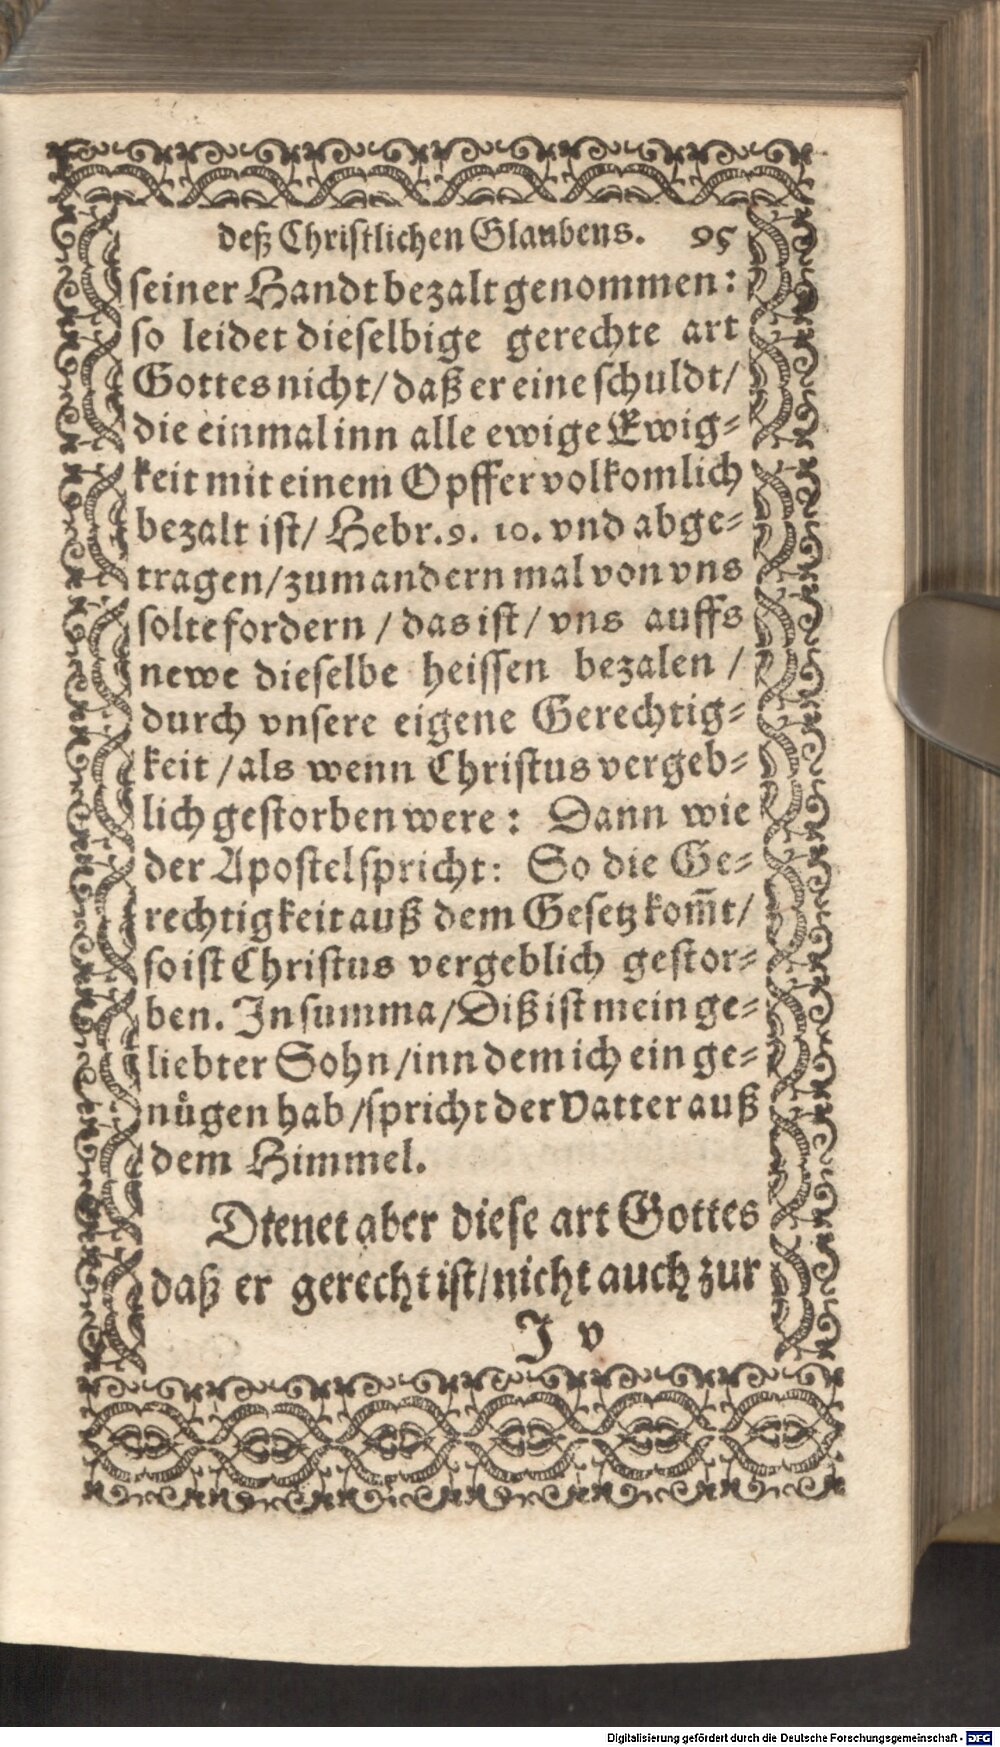 deß Christlichen Glaubens. 95
seiner Handt bezalt genommen:
so leidet dieselbige gerechte art
Gottes nicht/ daß er eine schuldt/
die einmal inn alle ewige Ewig-
keit mit einem Opffer volkomlich
bezalt ist/ Hebr. 9. 10. vnd abge-
tragen/ zum andern mal von vns
solte fordern / das ist/ vns auffs
newe dieselbe heissen bezalen /
durch vnsere eigene Gerechtig-
keit / als wenn Christus vergeb-
lich gestorben were: Dann wie
der Apostel spricht: So die Ge-
rechtigkeit auß dem Gesetz kom̃t/
so ist Christus vergeblich gestor-
ben. In summa/ Diß ist mein ge-
liebter Sohn / inn dem ich ein ge-
nuͤgen hab / spricht der Vatter auß
dem Himmel.
Dienet aber diese art Gottes
daß er gerecht ist/ nicht auch zur
J v
Digitalisierung gefördert durch die Deutsche Forschungsgemeinschaft - DFG